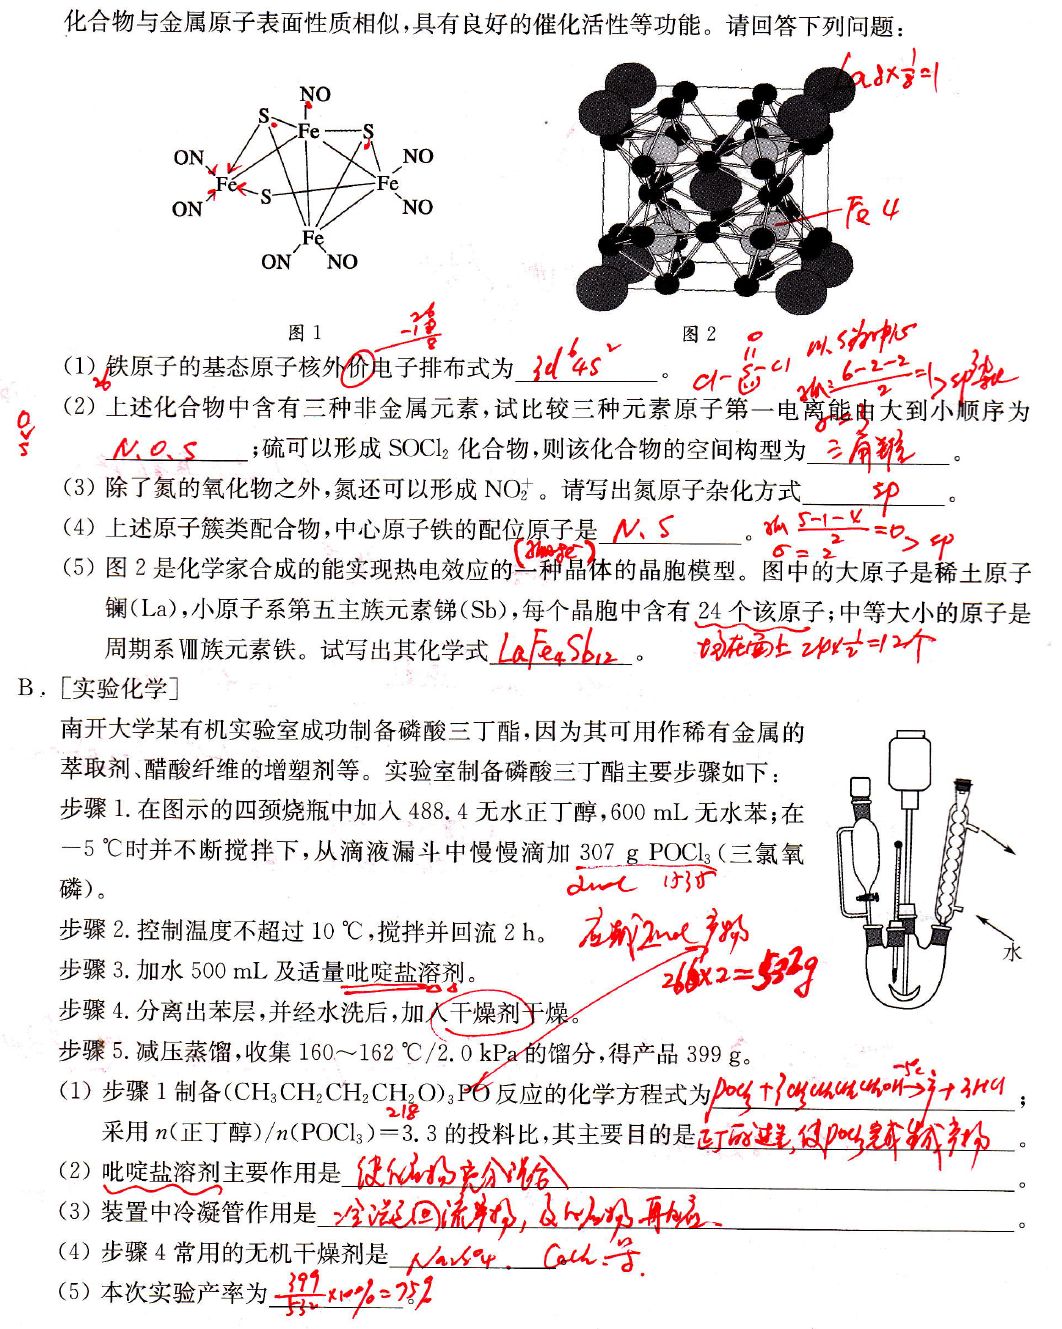 化合物与金属原子表面性质相似,具有良好的催化活性等功能。请回答下列问题:
La 8×1/8=1
NO
S
Fe
S
ON
NO
Fe
S
Fe
ON
NO
Fe
ON NO
Fe 4
图 1
图 2
(1) 铁原子的基态原子核外价电子排布式为 3d⁶4s² 。
26
(2) 上述化合物中含有三种非金属元素,试比较三种元素原子第一电离能由大到小顺序为
N、O、S ;硫可以形成 SOCl₂ 化合物,则该化合物的空间构型为 三角锥 。
(3) 除了氮的氧化物之外,氮还可以形成 NO₂⁺。请写出氮原子杂化方式 sp 。
(4) 上述原子簇类配合物,中心原子铁的配位原子是 N、S 。
5-1-4/2=0
σ=2 > sp
(5) 图 2 是化学家合成的能实现热电效应的一种晶体的晶胞模型。图中的大原子是稀土原子
镧(La),小原子系第五主族元素锑(Sb),每个晶胞中含有 24 个该原子;中等大小的原子是
周期系Ⅷ族元素铁。试写出其化学式 LaFe₄Sb₁₂ 。
均在面上 24×1/2=12个
B. [实验化学]
南开大学某有机实验室成功制备磷酸三丁酯,因为其可用作稀有金属的
萃取剂、醋酸纤维的增塑剂等。实验室制备磷酸三丁酯主要步骤如下:
步骤 1. 在图示的四颈烧瓶中加入 488.4 无水正丁醇,600 mL 无水苯;在
-5 ℃时并不断搅拌下,从滴液漏斗中慢慢滴加 307 g POCl₃(三氯氧
磷)。
2mol 153.5
步骤 2. 控制温度不超过 10 ℃,搅拌并回流 2 h。
2mol 产物
步骤 3. 加水 500 mL 及适量吡啶盐溶剂。
266×2=532g
水
步骤 4. 分离出苯层,并经水洗后,加入干燥剂干燥。
步骤 5. 减压蒸馏,收集 160～162 ℃/2.0 kPa 的馏分,得产品 399 g。
(1) 步骤 1 制备(CH₃CH₂CH₂CH₂O)₃PO 反应的化学方程式为 POCl₃+3CH₃CH₂CH₂CH₂OH→ +3HCl ;
采用 n(正丁醇)/n(POCl₃)=3.3 的投料比,其主要目的是 正丁醇过量,使POCl₃完成生成产物 。
(2) 吡啶盐溶剂主要作用是 使反应物充分混合 。
(3) 装置中冷凝管作用是 冷凝回流 。
(4) 步骤 4 常用的无机干燥剂是 Na₂SO₄、CaCl₂等.
(5) 本次实验产率为 399/532×100%=75% 。